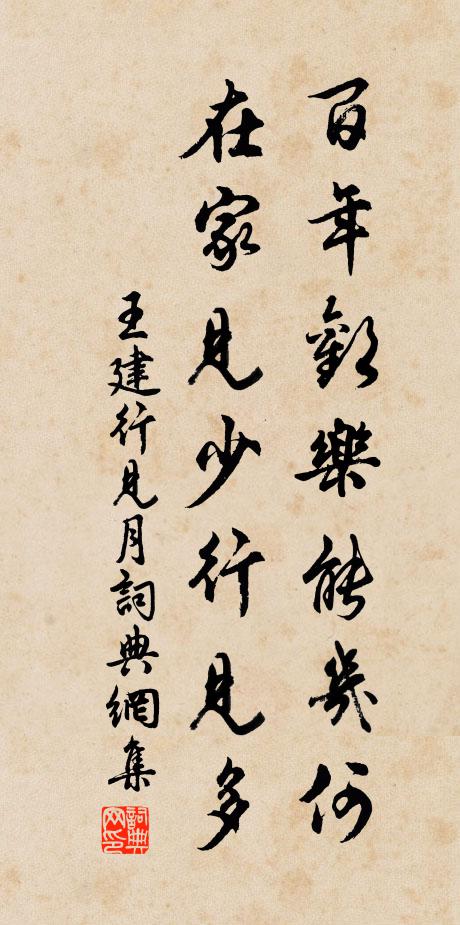 百年歡樂能幾何
在家見少行見多
王建行見月詞典網集
詞典網印